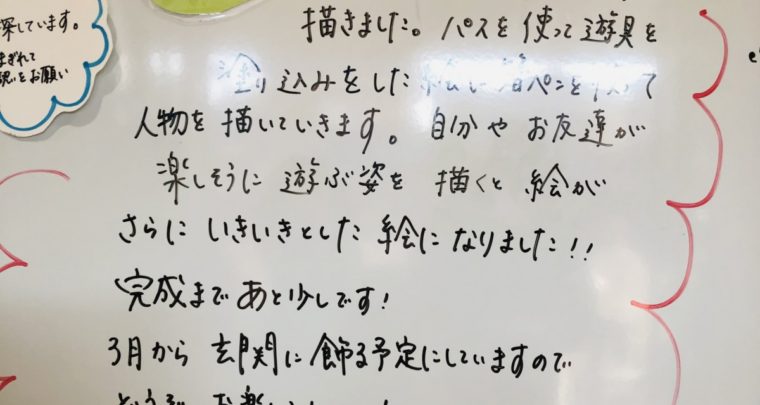 探しています。
まぎれて
お願い
描きました。パスを使って遊具を
塗り込みをした絵に
人物を描いていきます。自分やお友達が
楽しそうに遊ぶ姿を描くと絵が
さらにいきいきとした絵になりました!!
完成まであと少しです!
3月から玄関に飾る予定にしていますので